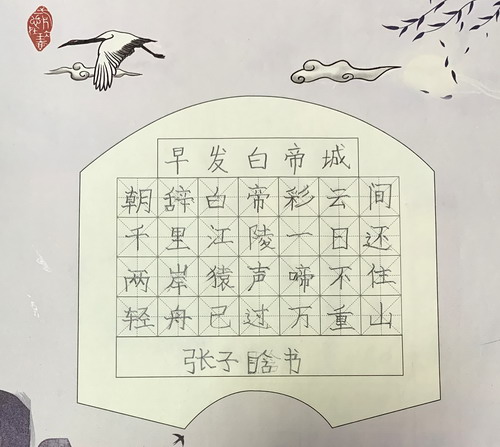 早发白帝城
朝辞白帝彩云间
千里江陵一日还
两岸猿声啼不住
轻舟已过万重山
张子晗书